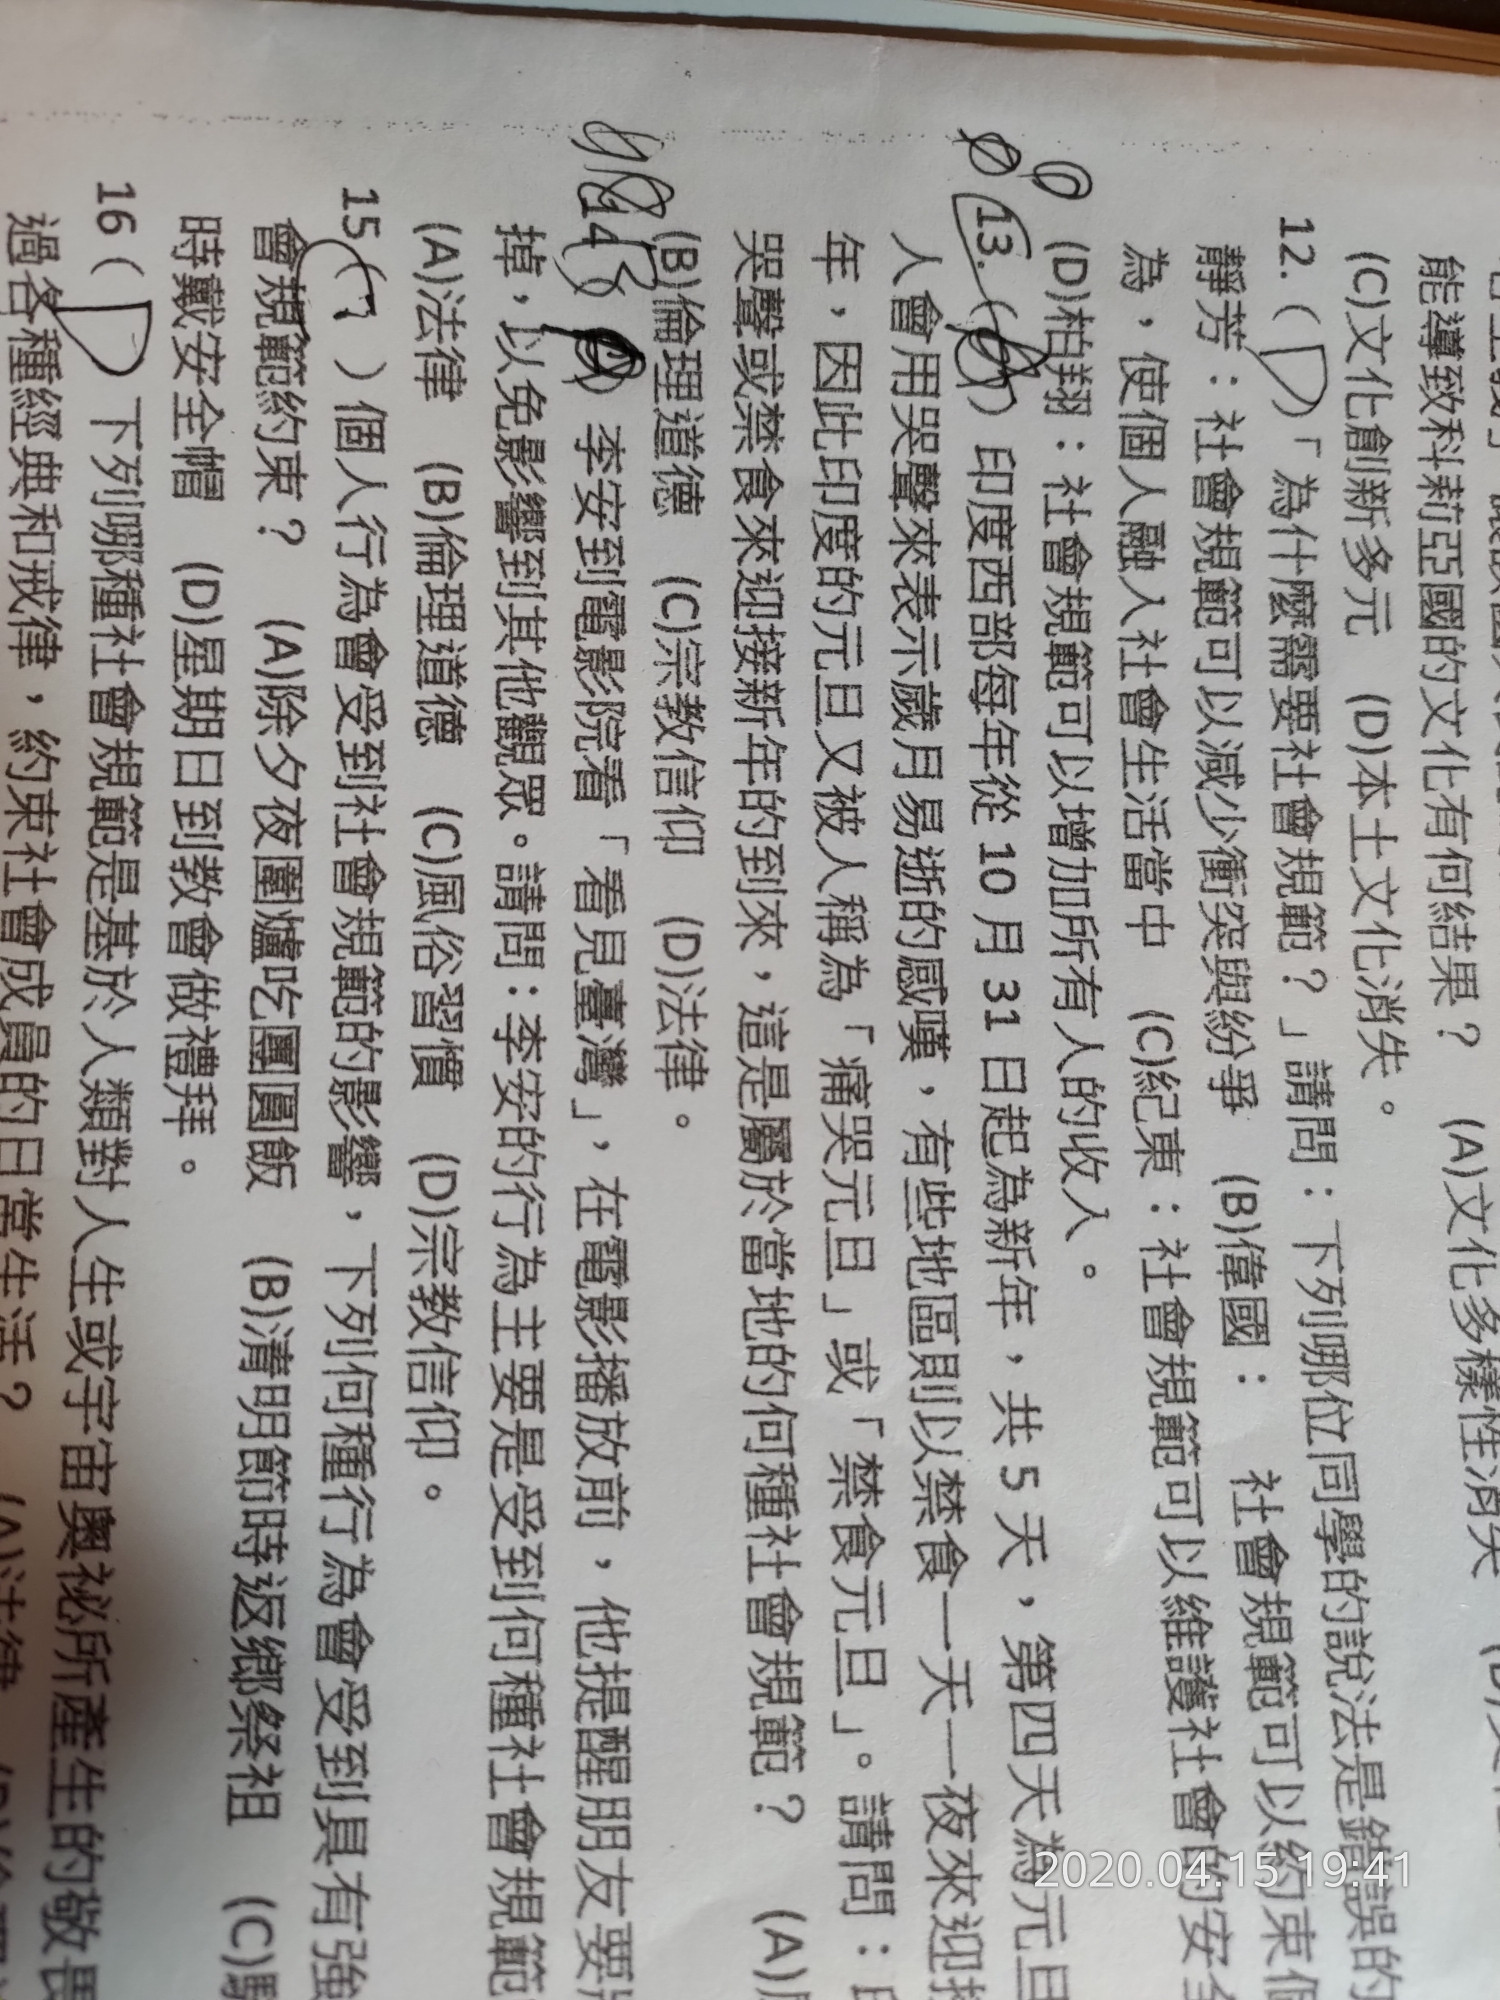 能導致科莉亞國的文化有何結果？ (A)文化多樣性消失
(C)文化創新多元 (D)本土文化消失。
12.(D)「為什麼需要社會規範？」請問：下列哪位同學的說法是錯誤的
靜芳：社會規範可以減少衝突與紛爭 (B)偉國： 社會規範可以約束個
為，使個人融入社會生活當中 (C)紀東：社會規範可以維護社會的安全
(D)柏翔：社會規範可以增加所有人的收入。
13.( ) 印度西部每年從 10 月 31 日起為新年，共 5 天，第四天為元旦
人會用哭聲來表示歲月易逝的感嘆，有些地區則以禁食一天一夜來迎接
年，因此印度的元旦又被人稱為「痛哭元旦」或「禁食元旦」。請問：
哭聲或禁食來迎接新年的到來，這是屬於當地的何種社會規範？ (A)
(B)倫理道德 (C)宗教信仰 (D)法律。
14 ( ) 李安到電影院看「看見臺灣」，在電影播放前，他提醒朋友要
掉，以免影響到其他觀眾。請問：李安的行為主要是受到何種社會規範
(A)法律 (B)倫理道德 (C)風俗習慣 (D)宗教信仰。
15 ( ) 個人行為會受到社會規範的影響，下列何種行為會受到具有強
會規範約束？ (A)除夕夜圍爐吃團圓飯 (B)清明節時返鄉祭祖 (C)
時戴安全帽 (D)星期日到教會做禮拜。
16 (D 下列哪種社會規範是基於人類對人生或宇宙奧祕所產生的敬畏
過各種經典和戒律，約束社會成員的日常生活？ (A)法律
2020.04.15 19:41